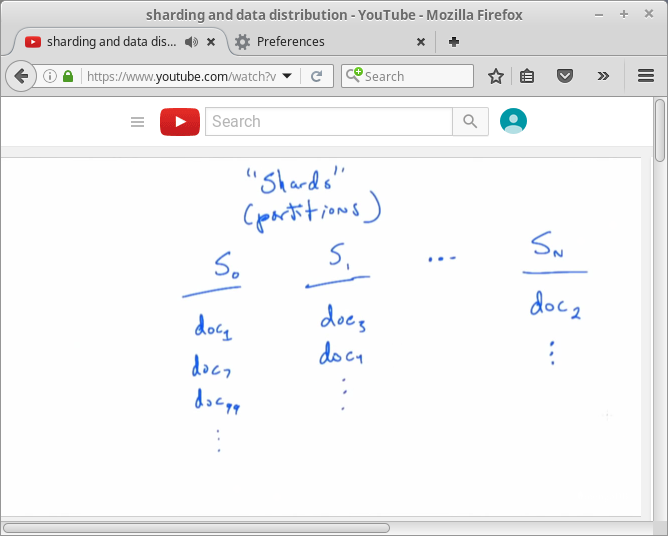 sharding and data distribution - YouTube - Mozilla Firefox
sharding and data dis...
Preferences
https://www.youtube.com/watch?v
Search
Search
"Shards"
(partitions)
S0 S1 ... SN
doc1 doc3 doc2
doc7 doc4
doc99